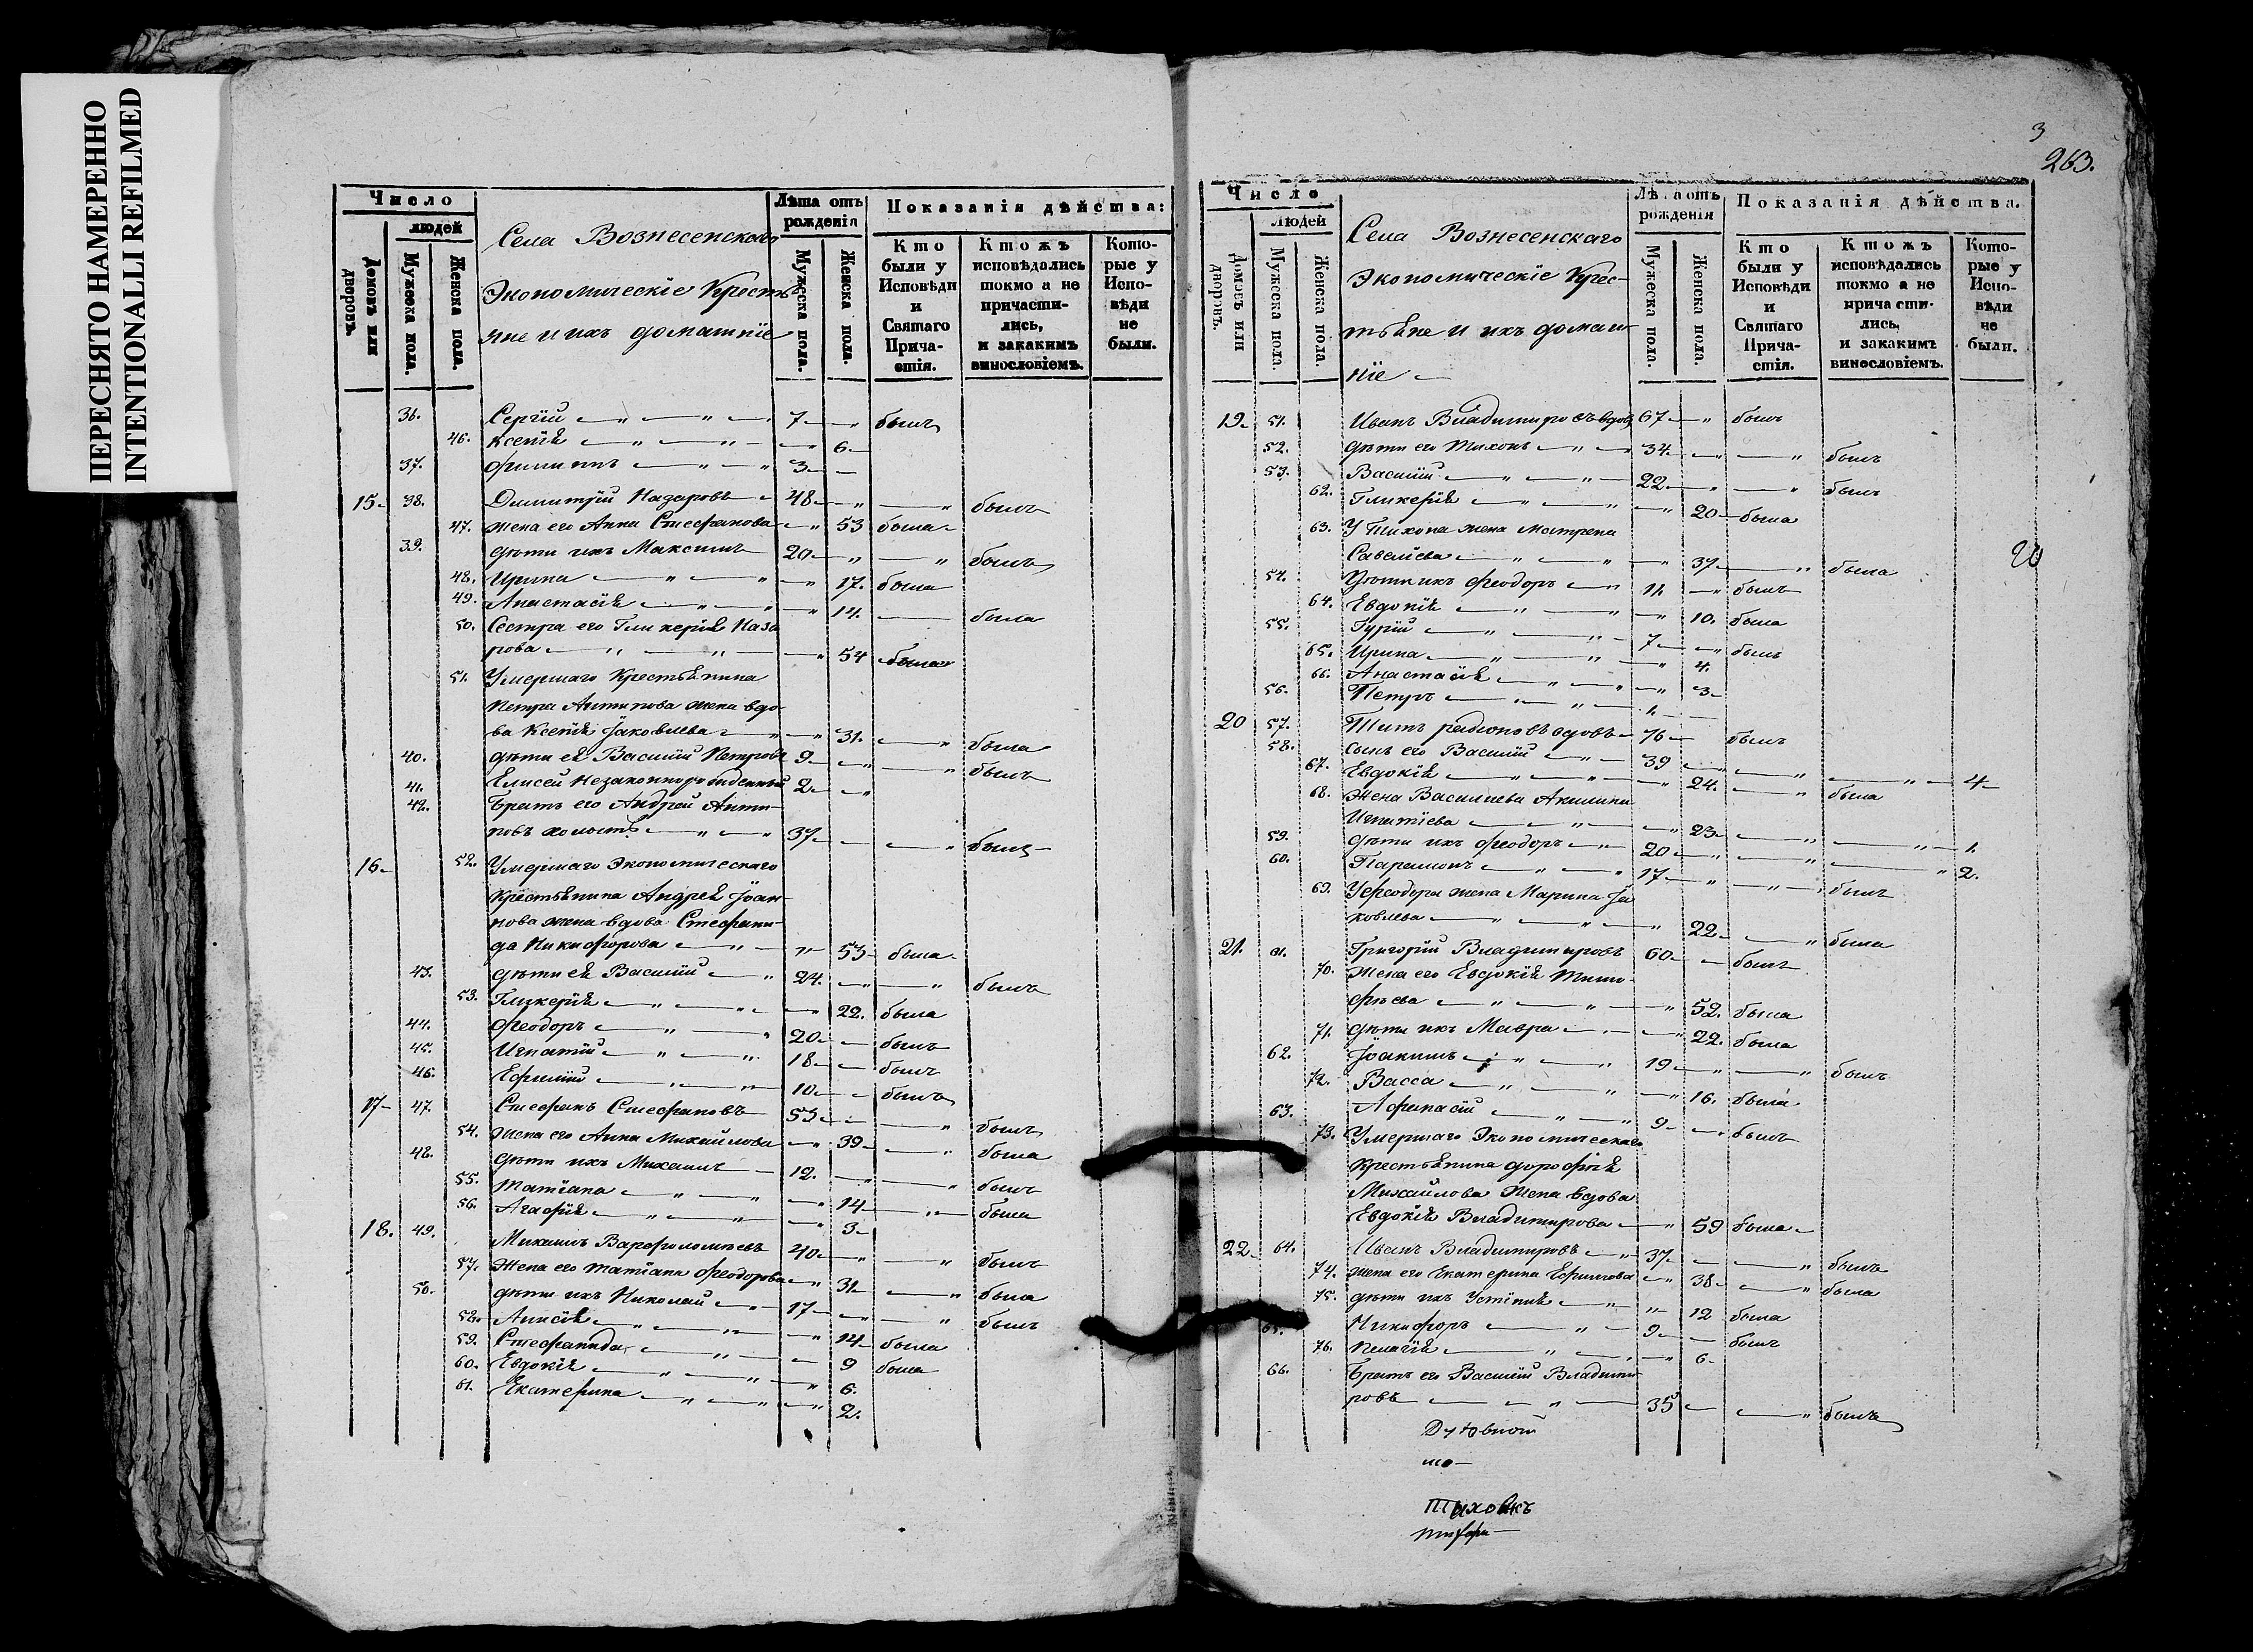 ПЕРЕСНЯТО НАМЕРЕННО
INTENTIONALLI REFILMED
Число
людей
Домовъ или дворовъ.
Мужеска пола.
Женска пола.
Села Вознесенскаго
Экономическіе Крестья
яне и ихъ домашніе
Лѣта отъ рожденія
Мужеска пола.
Женска пола.
Показанія дѣйства:
Кто были у Исповѣди и Святаго Причастія.
Ктожъ исповѣдались токмо а не причастились, и закакимъ винословіемъ.
Которые у Исповѣди не были.
36. Сергій 7 былъ
46. Ксенія 6
37. Филиппъ 3
15 38. Димитрій Назаровъ 48 былъ
47. жена его Анна Стефанова 53 была
39. дѣти ихъ Максимъ 20 былъ
48. Ирина 17. была
49. Анастасія 14. была
50. Сестра его Гликерія Наза
рова 54 была
51. Умершаго Крестьянина
Петра Антипова жена вдо
ва Ксенія Јаковлева 31. была
40. дѣти ея Василій Петровъ 9 былъ
41. Елисей незаконнорожденный 2
42. Братъ его Андрей Анти
повъ холостъ 37 былъ
16 52. Умершаго Экономическаго
Крестьянина Андрея Јоан
нова жена вдова Стефани
да Никифорова 53 была
43. дѣти ея Василій 24. былъ
53. Гликерія 22. была
44. Феодоръ 20 былъ
45. Игнатій 18 былъ
46. Ефимій 10 былъ
17 47. Стефанъ Стефановъ 53 былъ
54. жена его Анна Михайлова 39 была
48. дѣти ихъ Михаилъ 12. былъ
55. Татіана 14 была
56. Агафія 3
18. 49. Михаилъ Варфоломѣевъ 40 былъ
57. Жена его Татіана Феодорова 31 была
50. дѣти ихъ Николай 17 былъ
58. Анисія 14 была
59. Стефанида 9 была
60. Евдокія 6.
61. Екатерина 2.
3
263.
Число
людей
Домовъ или дворовъ.
Мужеска пола.
Женска пола.
Села Вознесенскаго
Экономическіе Крес
тьяне и ихъ домаш
ніе
Лѣта отъ рожденія
Мужеска пола.
Женска пола.
Показанія дѣйства.
Кто были у Исповѣди и Святаго Причастія.
Ктожъ исповѣдались токмо а не причастились, и закакимъ винословіемъ.
Которые у Исповѣди не были.
19 51. Иванъ Владимировъ вдовъ 67 былъ
52. дѣти его Тихонъ 34 былъ
53. Василій 22 былъ
62. Гликерія 20 была
63. У Тихона жена Матрена
Савельева 37 была
54. дѣти ихъ Феодоръ 11 былъ
64. Евдокія 10. была
55. Гурій 7 былъ
65. Ирина 4.
66. Анастасія 3
56. Петръ 1
20 57. Титъ радіоновъ вдовъ 76 былъ
58. Сынъ его Василій 39 4
67. Евдокія 24. была
68. Жена Васильева Акилина
Игнатіева 23 1.
59. дѣти ихъ Феодоръ 20 2.
60. Парамонъ 17 былъ
69. У Феодора жена Марина Ја
ковлева 22 была
21. 61. Григорій Владимировъ 60 былъ
70. Жена его Евдокія Тимо
фѣева 52. была
71. дѣти ихъ Мавра 22. была
62. Јоакимъ 19 былъ
72. Васса 16. была
63. Афанасій 9 былъ
73. Умершаго Экономическаго
Крестьянина дорофѣя
Михайлова Жена вдова
Евдокія Владимирова 59 была
22 64. Иванъ Владимировъ 37 былъ
74. жена его Екатерина Ефимова 38 была
75. дѣти ихъ Устинія 12 была
65. Никифоръ 9 былъ
76. Пелагія 6
66. Братъ его Василій Владими
ровъ 35 былъ